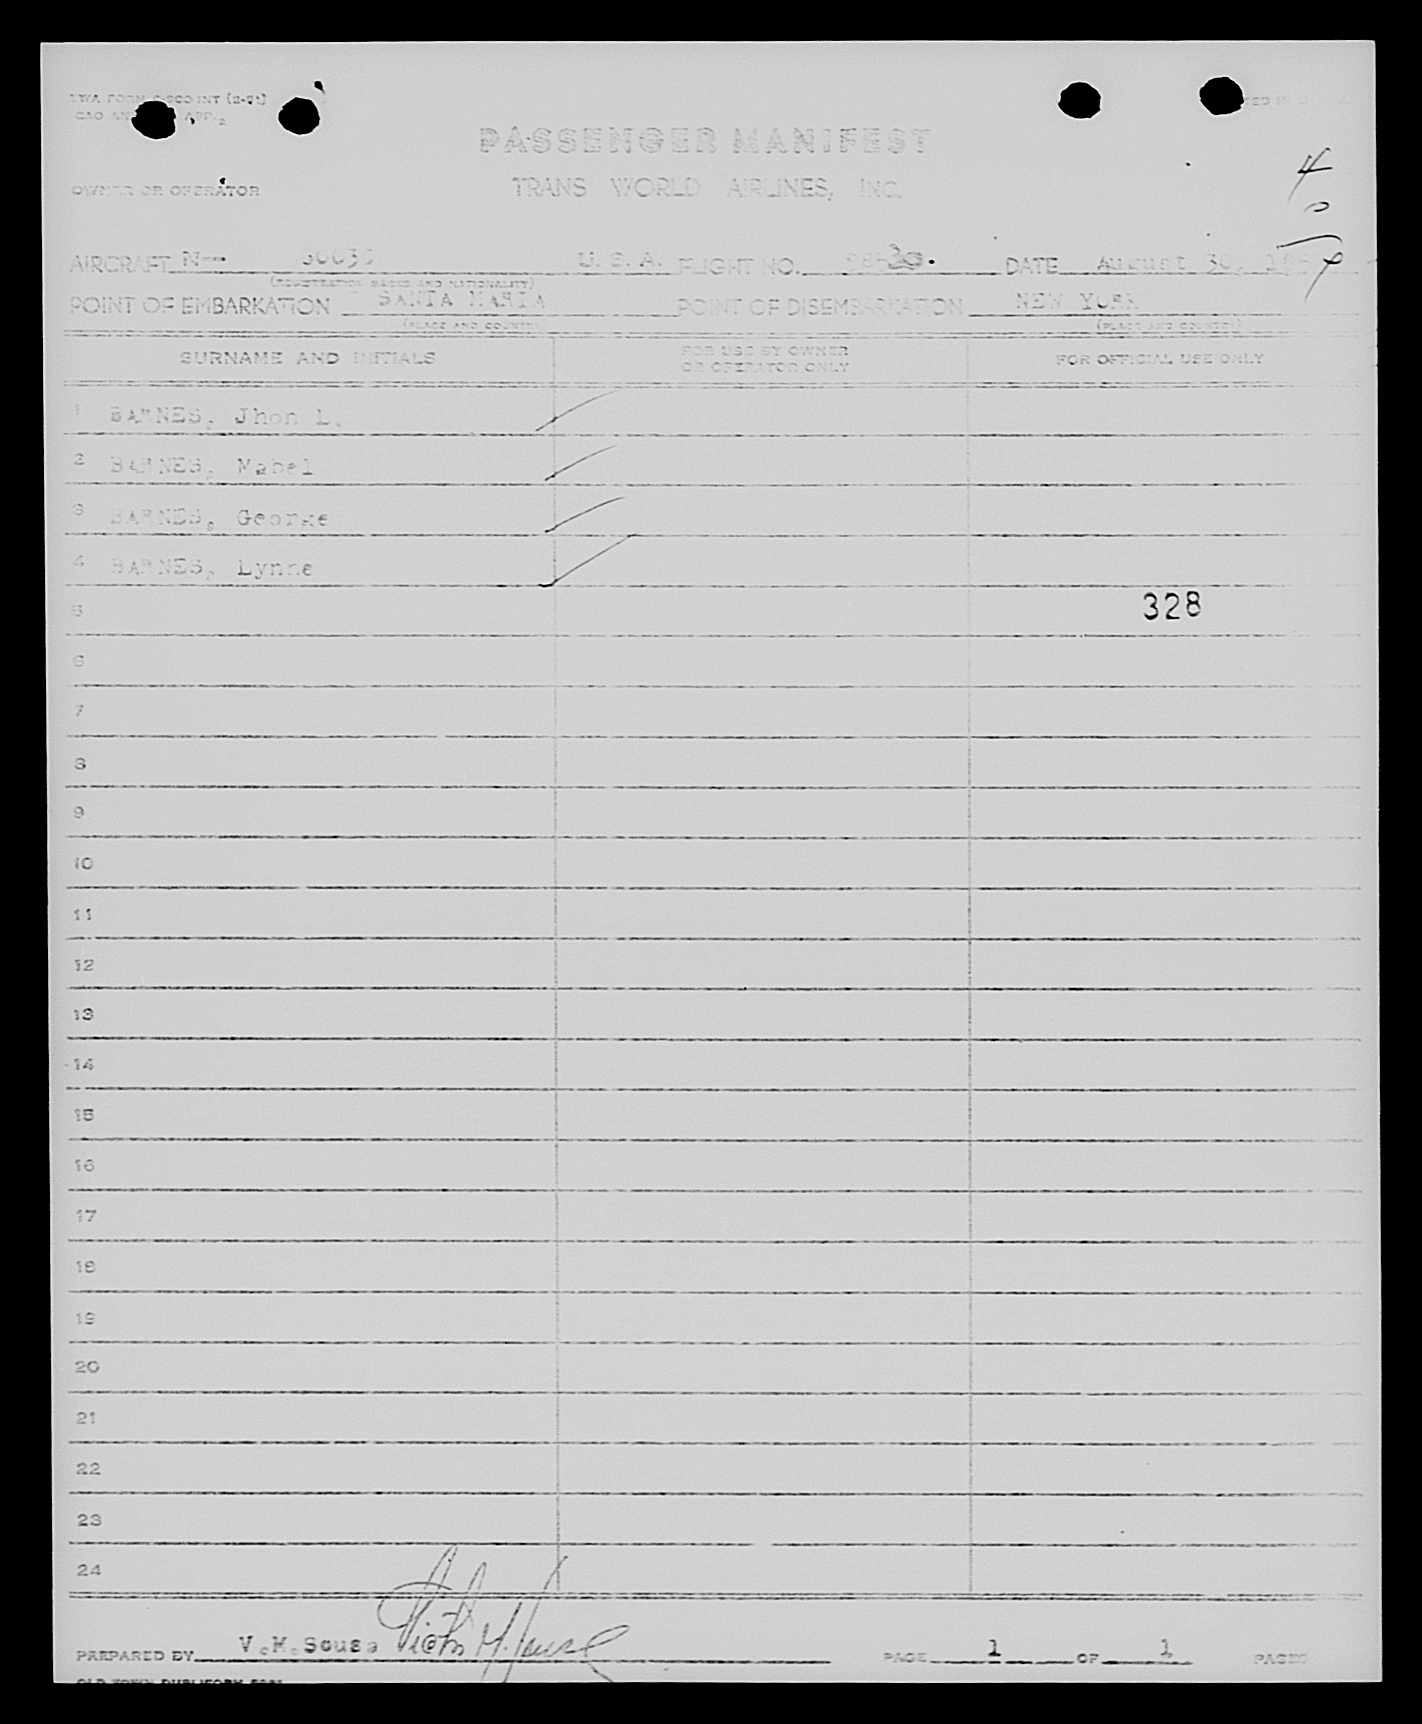 PASSENGER MANIFEST
OWNER OR OPERATOR TRANS WORLD AIRLINES, INC.
AIRCRAFT N-- U. S. A. FLIGHT NO. DATE August 30,
(REGISTRATION MARKS AND NATIONALITY)
POINT OF EMBARKATION SANTA MARIA POINT OF DISEMBARKATION NEW YORK
(PLACE AND COUNTRY) (PLACE AND COUNTRY)
SURNAME AND INITIALS FOR USE BY OWNER OR OPERATOR ONLY FOR OFFICIAL USE ONLY
1 BARNES, Jhon L.
2 BARNES, Mabel
3 BARNES, George
4 BARNES, Lynne
5 328
6
7
8
9
10
11
12
13
14
15
16
17
18
19
20
21
22
23
24
PREPARED BY V.M.Sousa PAGE 1 OF 1 PAGES